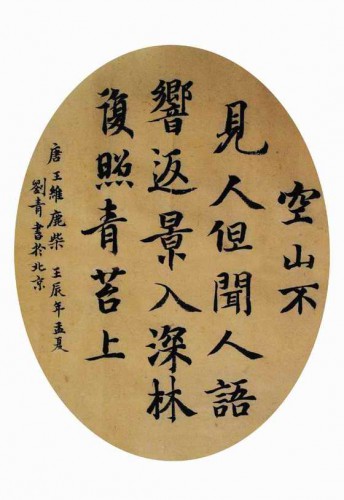 空山不
見人但聞人語
響返景入深林
復照青苔上
唐王維鹿柴壬辰年孟夏
劉青書於北京